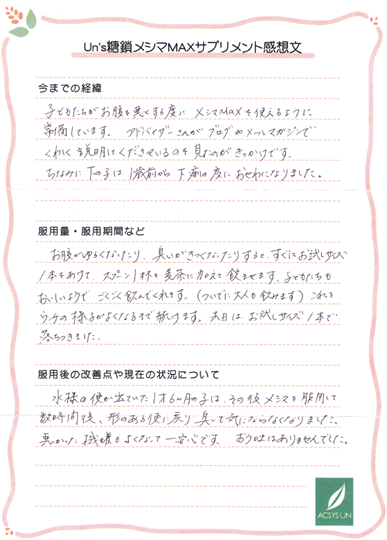 Un's糖鎖メシマMAXサプリメント感想文
今までの経緯
子どもたちがお腹を悪くする度に メシマMAXを使えるように
常備しています。 アドバイザーさんがブログやメールマガジンで
くわしく説明してくださっているのを見たのがきっかけです。
ちなみに下の子は1歳前から下痢の度におせわになりました。
服用量・服用期間など
お腹がゆるくなったり、臭いがきつくなったりすると、すぐにお試しサイズ
1本をあけて、スプーン1杯を麦茶に加えて飲ませます。子どもたちも
おいしいようで ごくごく飲んでくれます。(ついでに大人も飲みます)これを
ウンチの様子がよくなるまで続けます。 お試しサイズ1本で
落ちつきました。
服用後の改善点や現在の状況について
水様の便が出ていた1才6ヶ月の子は、その後メシマを服用して
数時間後、形のある便に戻り 臭いも気にならなくなりました。
悪かった機嫌もよくなって一安心です。 おう吐はありませんでした。
ACSYS UN